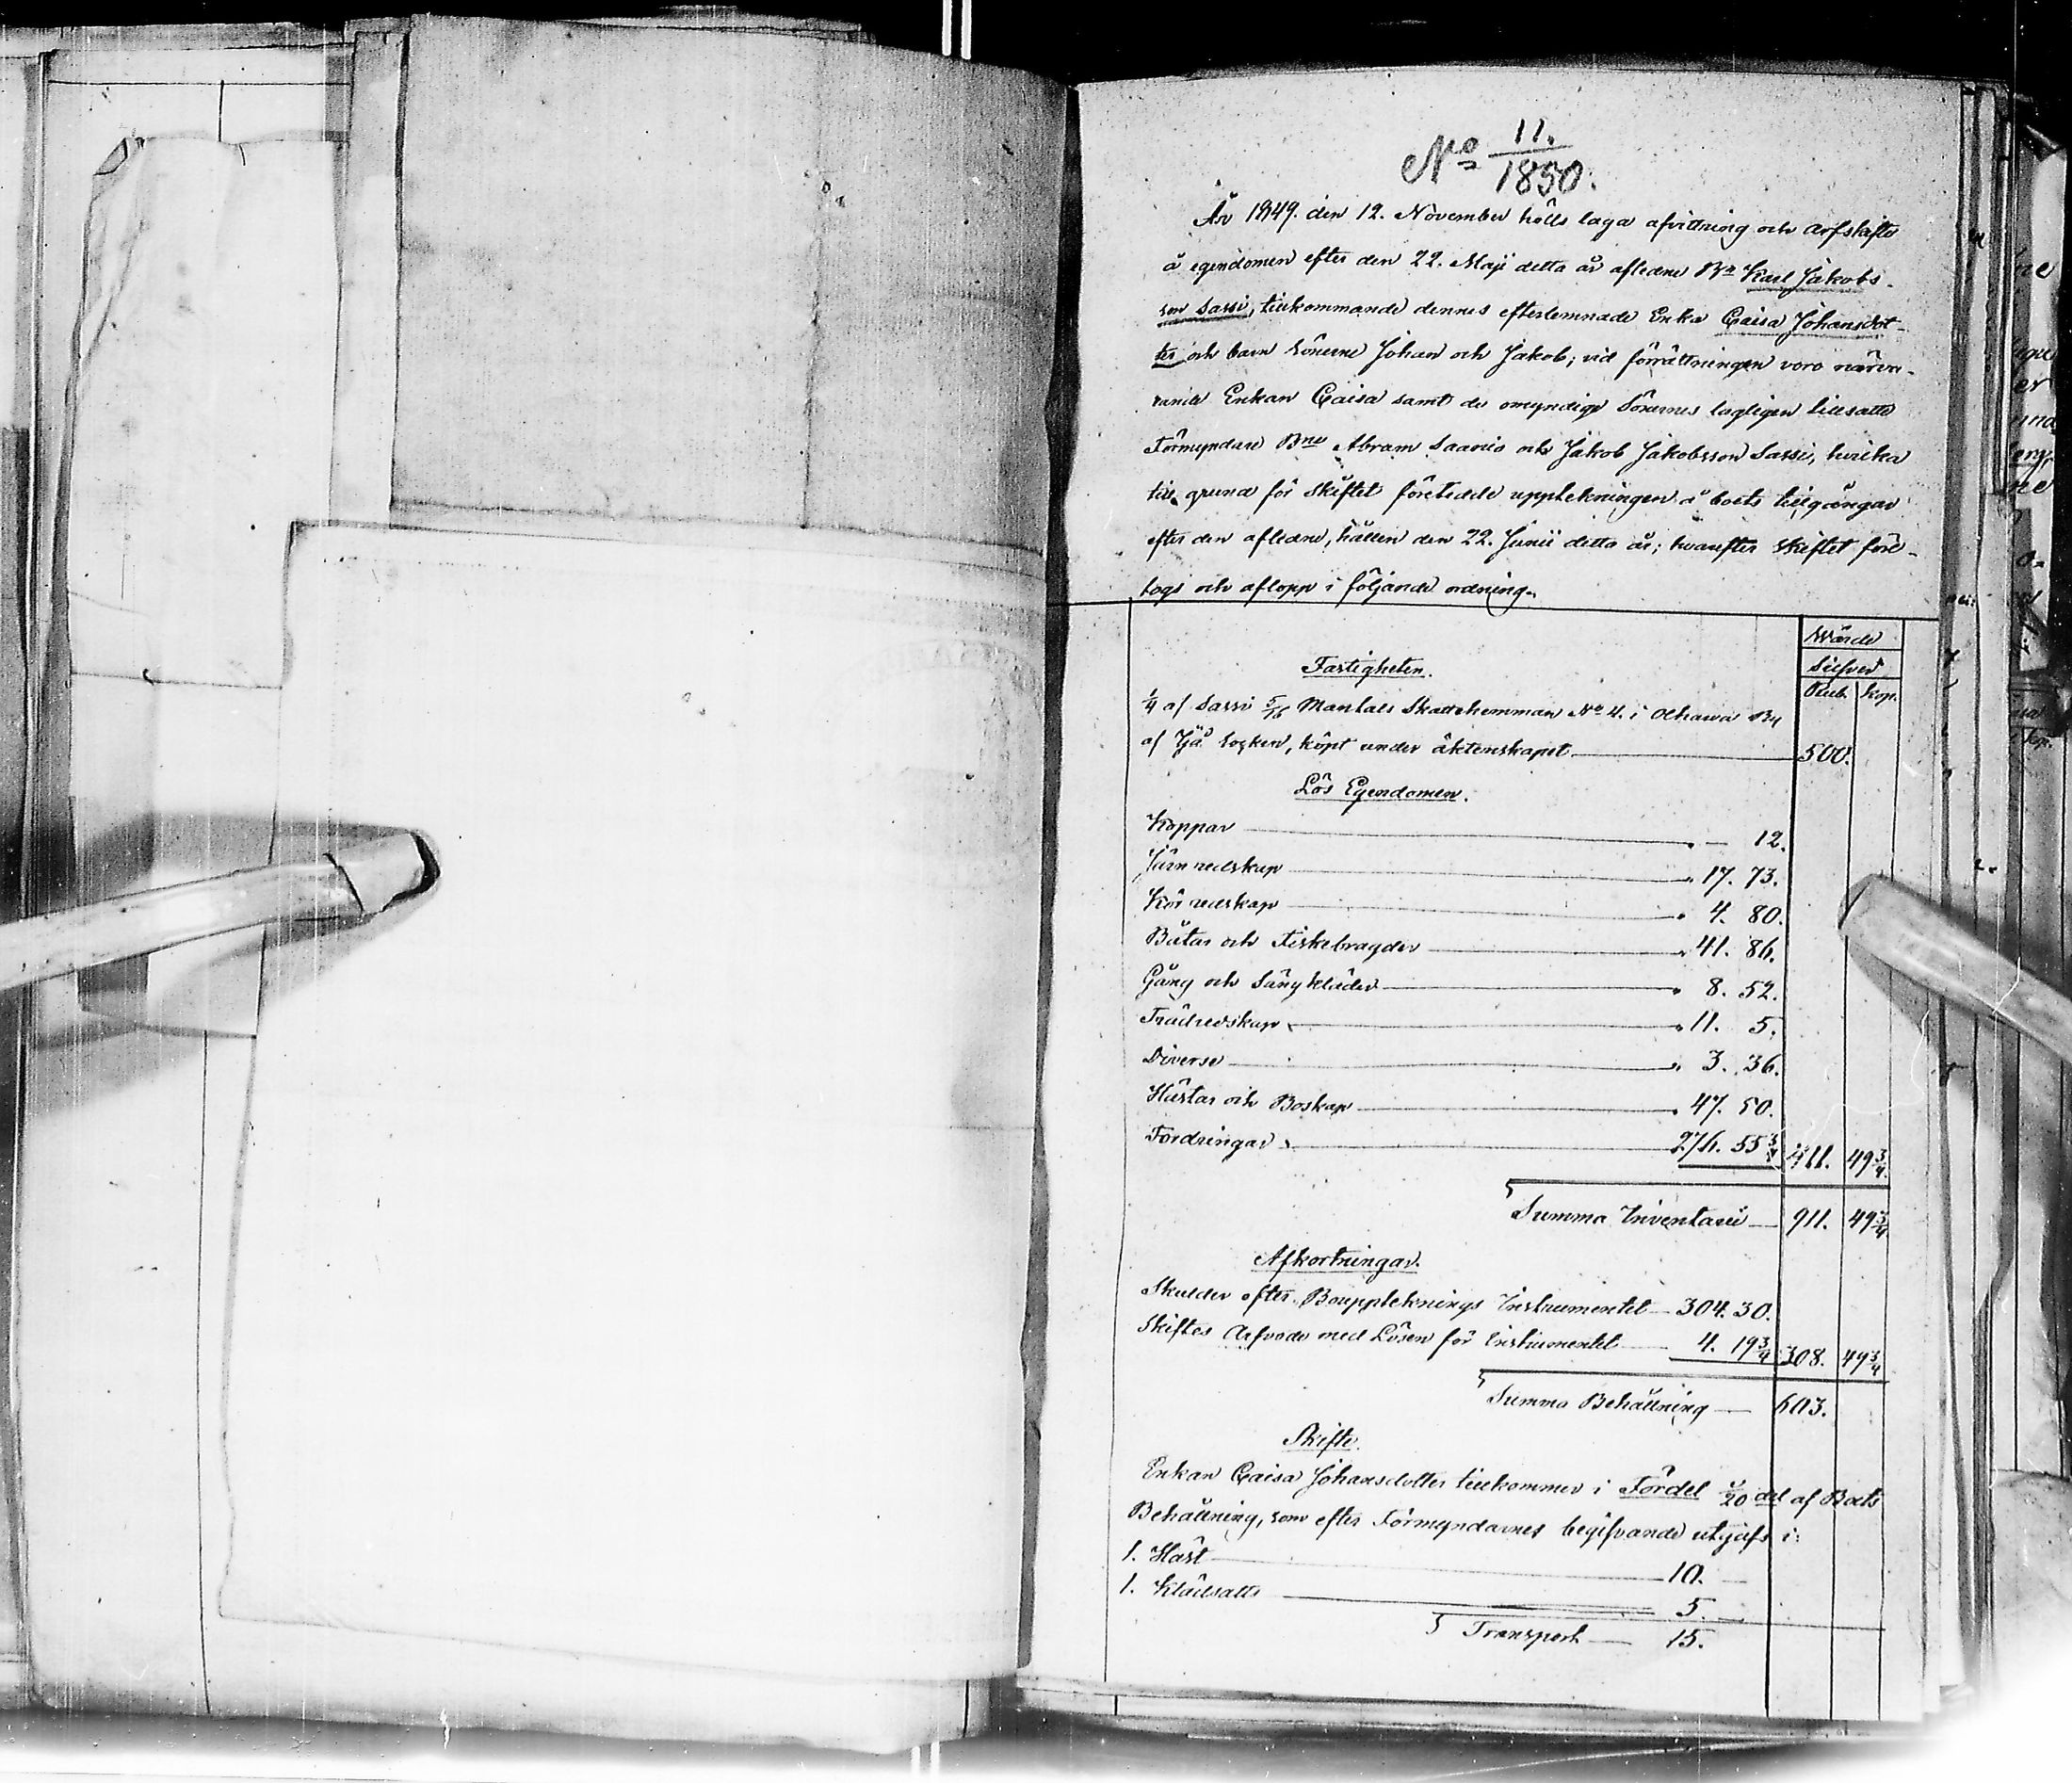 No 11./1850.
År 1849. den 12. November hölls laga afvittring och arfskifte
å egendomen efter den 22. Maji detta år aflednе Bn Karl Jakobs-
son Sassi, tillkommande dennes efterlemnade Enka Caisa Johansdot-
ter och barn Sönerne Johan och Jakob; vid förrättningen voro närva-
rande Enkan Caisa samt de omyndige Sönernes lagligen tillsatte
Förmyndare Bne Abram Saario och Jakob Jakobsson Sassi, hvilka
till grund för skiftet företedde uppteckningen å boets tillgångar
efter den aflednе, hållen den 22. Junii detta år; hvarefter skiftet före-
togs och aflopp i följande ordning.
Wärde
Silfver
Rub. Kop.
Fastigheten.
1/4 af Sassi 5/16 Mantals Skattehemman No 4. i Olhava By
af Ijå Socken, köpt under äktenskapet 500.
Lös Egendomen.
Koppar " — 12.
Järnredskap " 17. 73.
Körredskap " 4. 80.
Båtar och Fiskebragder " 41. 86.
Gång och Sängkläder " 8. 52.
Trädredskap " 11. 5.
Diverse " 3. 36.
Hästar och Boskap " 47. 50.
Fordringar 276. 55 3/4 411. 49 3/4.
Summa Inventarii 911. 49 3/4
Afkortningar.
Skulder efter Boupptecknings Instrumentet 304. 30.
Skiftes Arfvode med Lösen för Instrumentet 4. 19 3/4 308. 49 3/4
Summa Behållning 603.
Skifte.
Enkan Caisa Johansdotter tillkommer i Fördel 1/20 del af Boets
Behållning, som efter Förmyndarnes begifvande utgifs i:
1. Häst 10. —
1. Klädsatts 5. —
Transport 15.